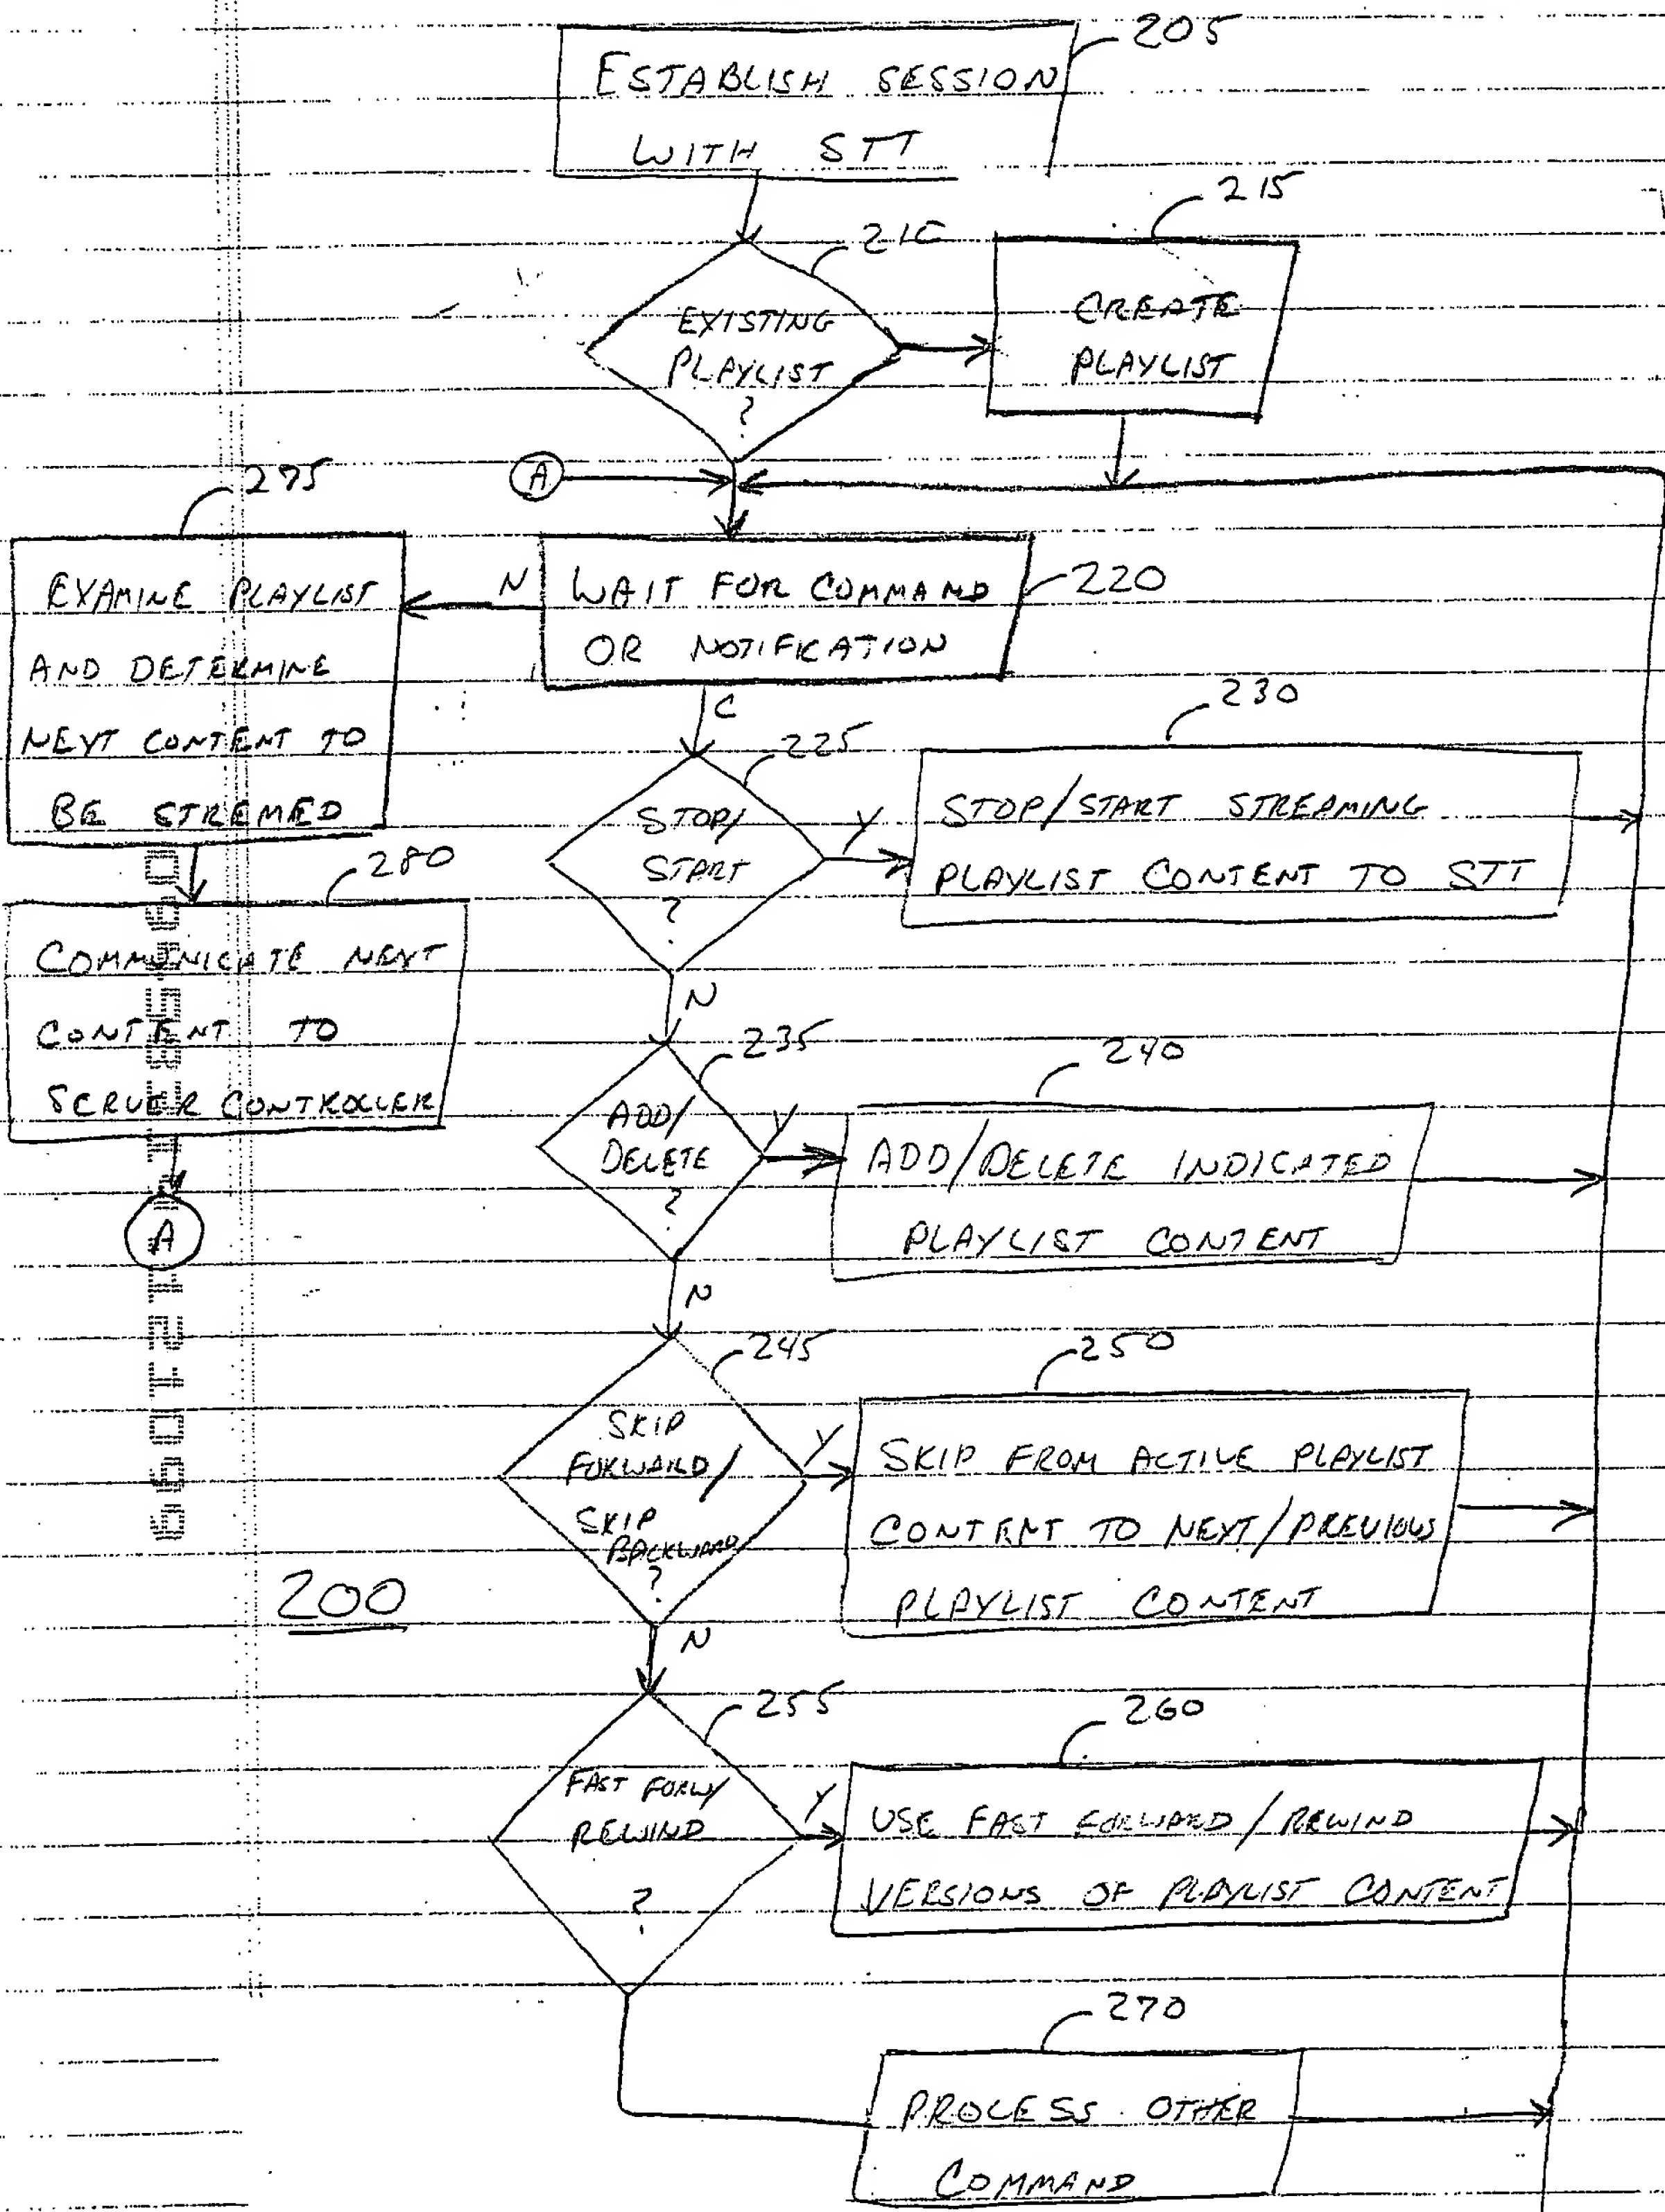 205
ESTABLISH SESSION
WITH STT
210
EXISTING
PLAYLIST
?
215
CREATE
PLAYLIST
A
275
EXAMINE PLAYLIST
AND DETERMINE
NEXT CONTENT TO
BE STREMED
N
WAIT FOR COMMAND
OR NOTIFICATION
220
C
225
STOP/
START
?
Y
230
STOP/START STREAMING
PLAYLIST CONTENT TO STT
280
COMMUNICATE NEXT
CONTENT TO
SERVER CONTROLLER
A
N
235
ADD/
DELETE
?
Y
240
ADD/DELETE INDICATED
PLAYLIST CONTENT
N
245
SKIP
FORWARD/
SKIP
BACKWARD
?
Y
250
SKIP FROM ACTIVE PLAYLIST
CONTENT TO NEXT/PREVIOUS
PLAYLIST CONTENT
200
N
255
FAST FORW/
REWIND
?
Y
260
USE FAST FORWARD/REWIND
VERSIONS OF PLAYLIST CONTENT
270
PROCESS OTHER
COMMAND